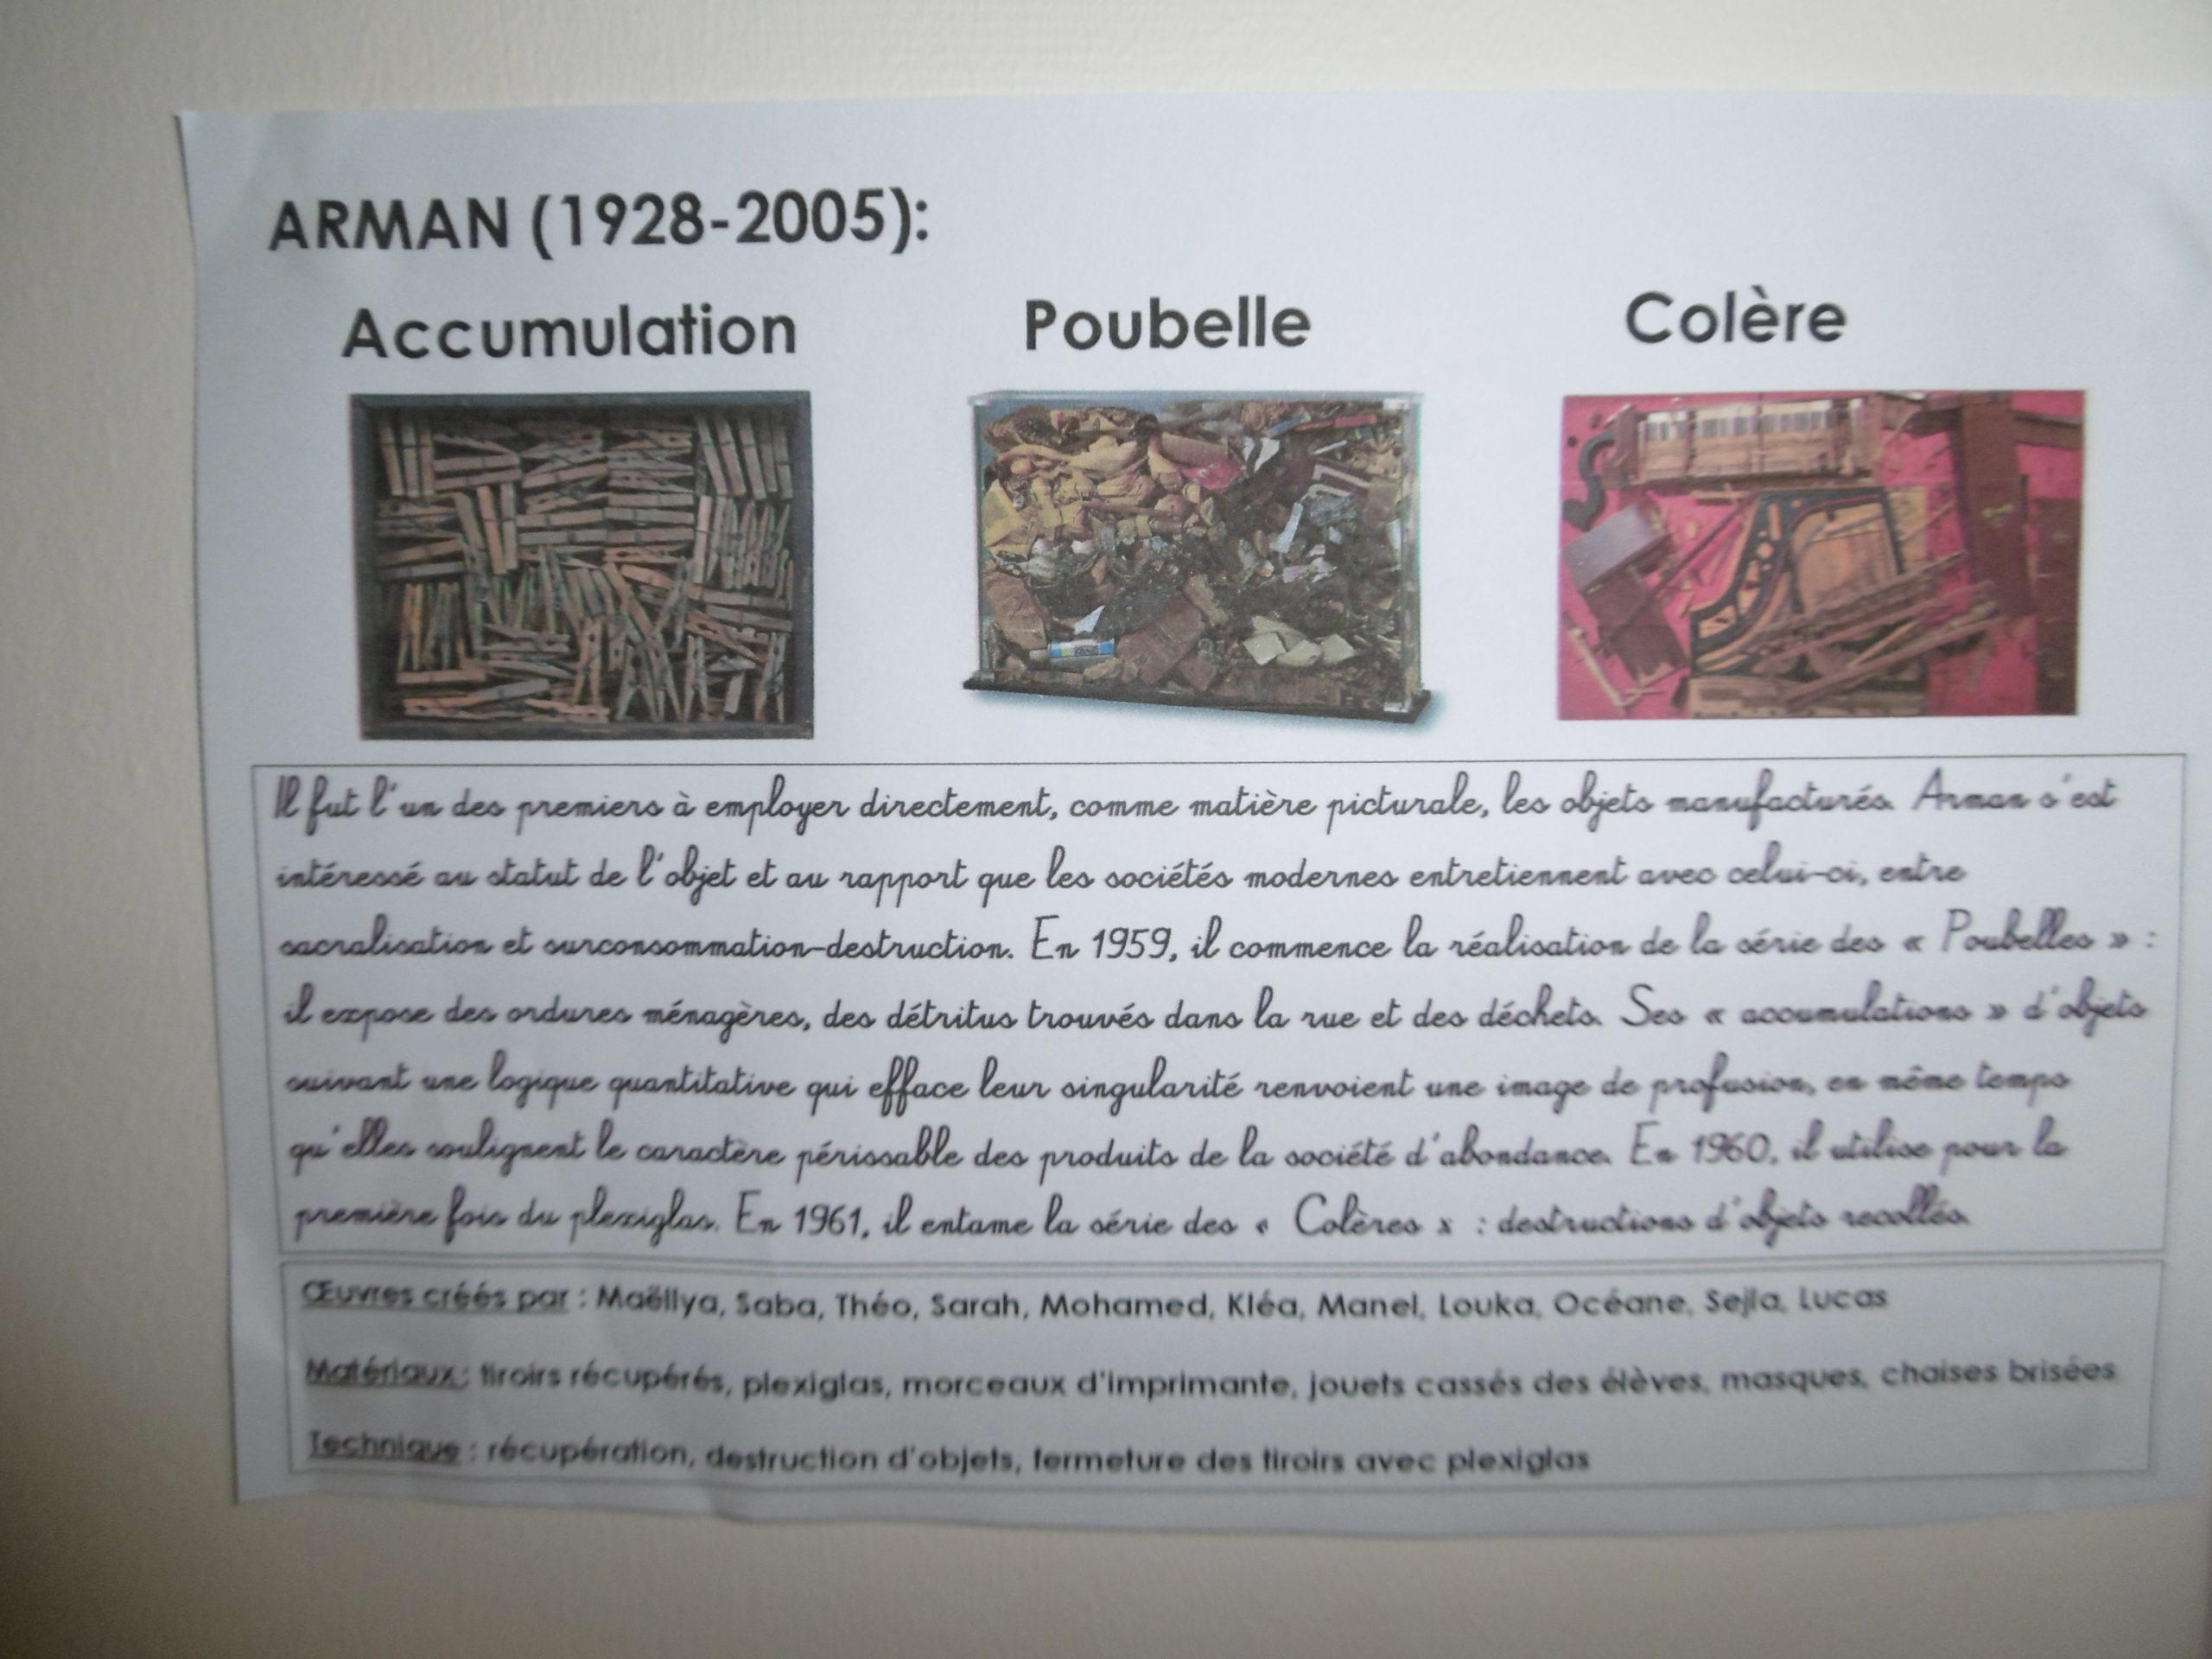 ARMAN (1928-2005):
Accumulation
Poubelle
Colère
Il fut l'un des premiers à employer directement, comme matière picturale, les objets manufacturés. Arman s'est
intéressé au statut de l'objet et au rapport que les sociétés modernes entretiennent avec celui-ci, entre
sacralisation et surconsommation-destruction. En 1959, il commence la réalisation de la série des « Poubelles » :
il expose des ordures ménagères, des détritus trouvés dans la rue et des déchets. Ses « accumulations » d'objets
suivant une logique quantitative qui efface leur singularité renvoient une image de profusion, en même temps
qu'elles soulignent le caractère périssable des produits de la société d'abondance. En 1960, il utilise pour la
première fois du plexiglas. En 1961, il entame la série des « Colères » : destructions d'objets recollés.
Œuvres créés par : Maëllya, Saba, Théo, Sarah, Mohamed, Kléa, Manel, Louka, Océane, Sejla, Lucas
Matériaux : tiroirs récupérés, plexiglas, morceaux d'imprimante, jouets cassés des élèves, masques, chaises brisées
Technique : récupération, destruction d'objets, fermeture des tiroirs avec plexiglas